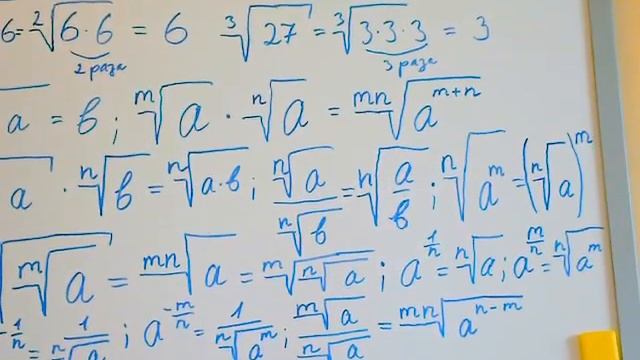 6=²√6·6 = 6 ³√27 = ³√3·3·3 = 3
2 раза 3 раза
a = b ; ᵐ√a · ⁿ√a = ᵐⁿ√a^(m+n)
a · ⁿ√b = ⁿ√a·b ; ⁿ√a / ⁿ√b = ⁿ√(a/b) ; ⁿ√a^m = (ⁿ√a)^m
√(ᵐ√a) = ᵐⁿ√a = ᵐ√(ⁿ√a) ; a^(1/n) = ⁿ√a ; a^(m/n) = ⁿ√a^m
-1/n = 1/ⁿ√a ; a^(-m/n) = 1/ⁿ√a^m ; ᵐ√a / ⁿ√a = ᵐⁿ√a^(n-m)